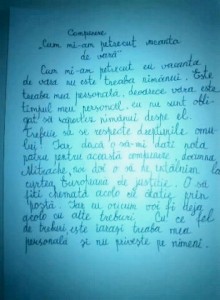 Compunere
„Cum mi-am petrecut vacanța
de vară”
Cum mi-am petrecut eu vacanta
de vara nu este treaba nimănui. Este
treaba mea personală, deoarece vara este
timpul meu personal, eu nu sunt obli-
gat să raportez nimănui despre el.
Trebuie să se respecte drepturile omu
lui! Iar dacă o să-mi dați nota
patru pentru această compunere doamna
Miteache, noi doi o să ne întâlnim la
curtea Europeană de justiție. O să
fiți chemată acolo cu citație prin
poștă. Iar eu oricum voi fi deja
acolo cu alte treburi. Cu ce fel
de treburi, este iarăși treaba mea
personală și nu privește pe nimeni.